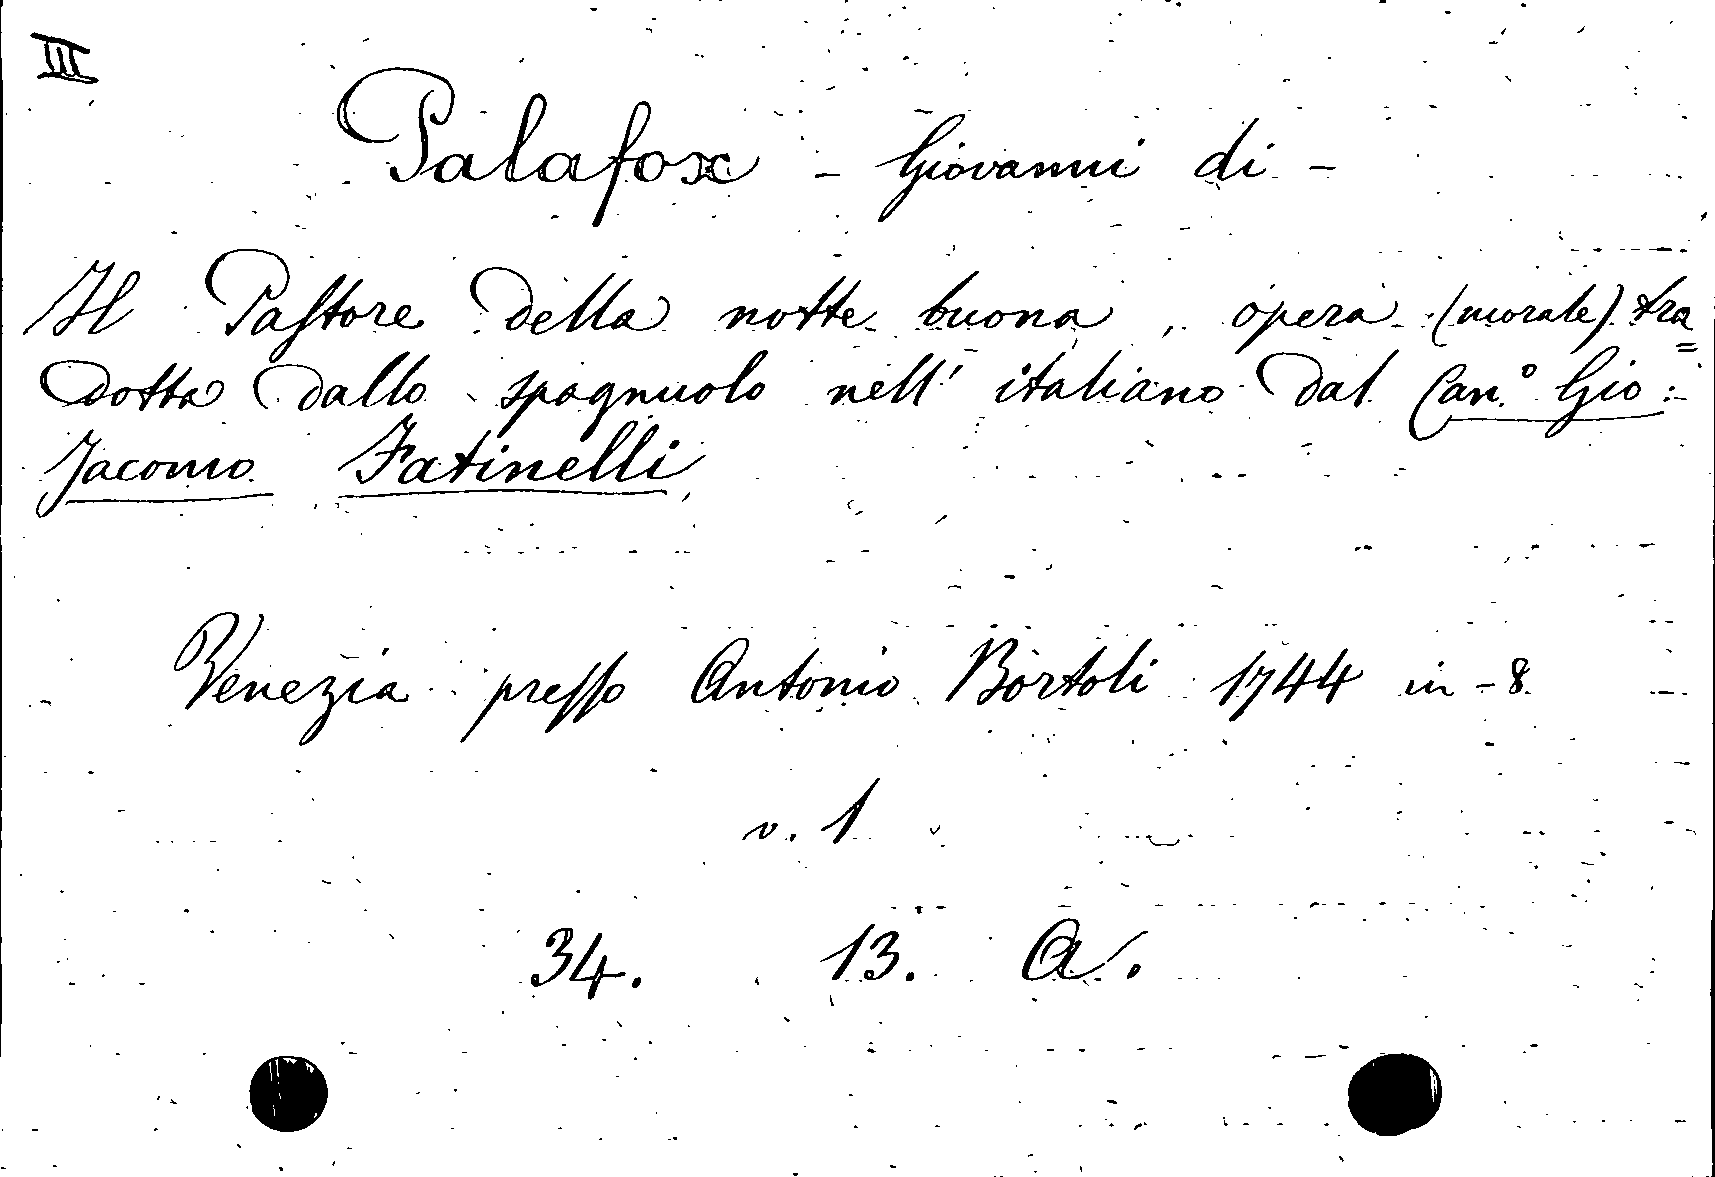 III
Palafox - Giovanni di -
Il Pastore della notte buona, opera (morale) tra=
dotta dallo spagnuolo nell' italiano dal Can.º Gio:
Jacomo Fatinelli
Venezia presso Antonio Bortoli 1744 in-8.
v. 1
34. 13. A.